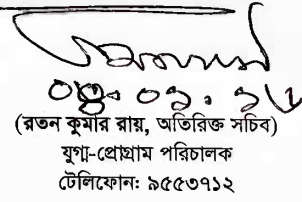 ০৪.০১.১৬
(রতন কুমার রায়, অতিরিক্ত সচিব)
যুগ্ম-প্রোগ্রাম পরিচালক
টেলিফোন: ৯৫৫৩৭১২